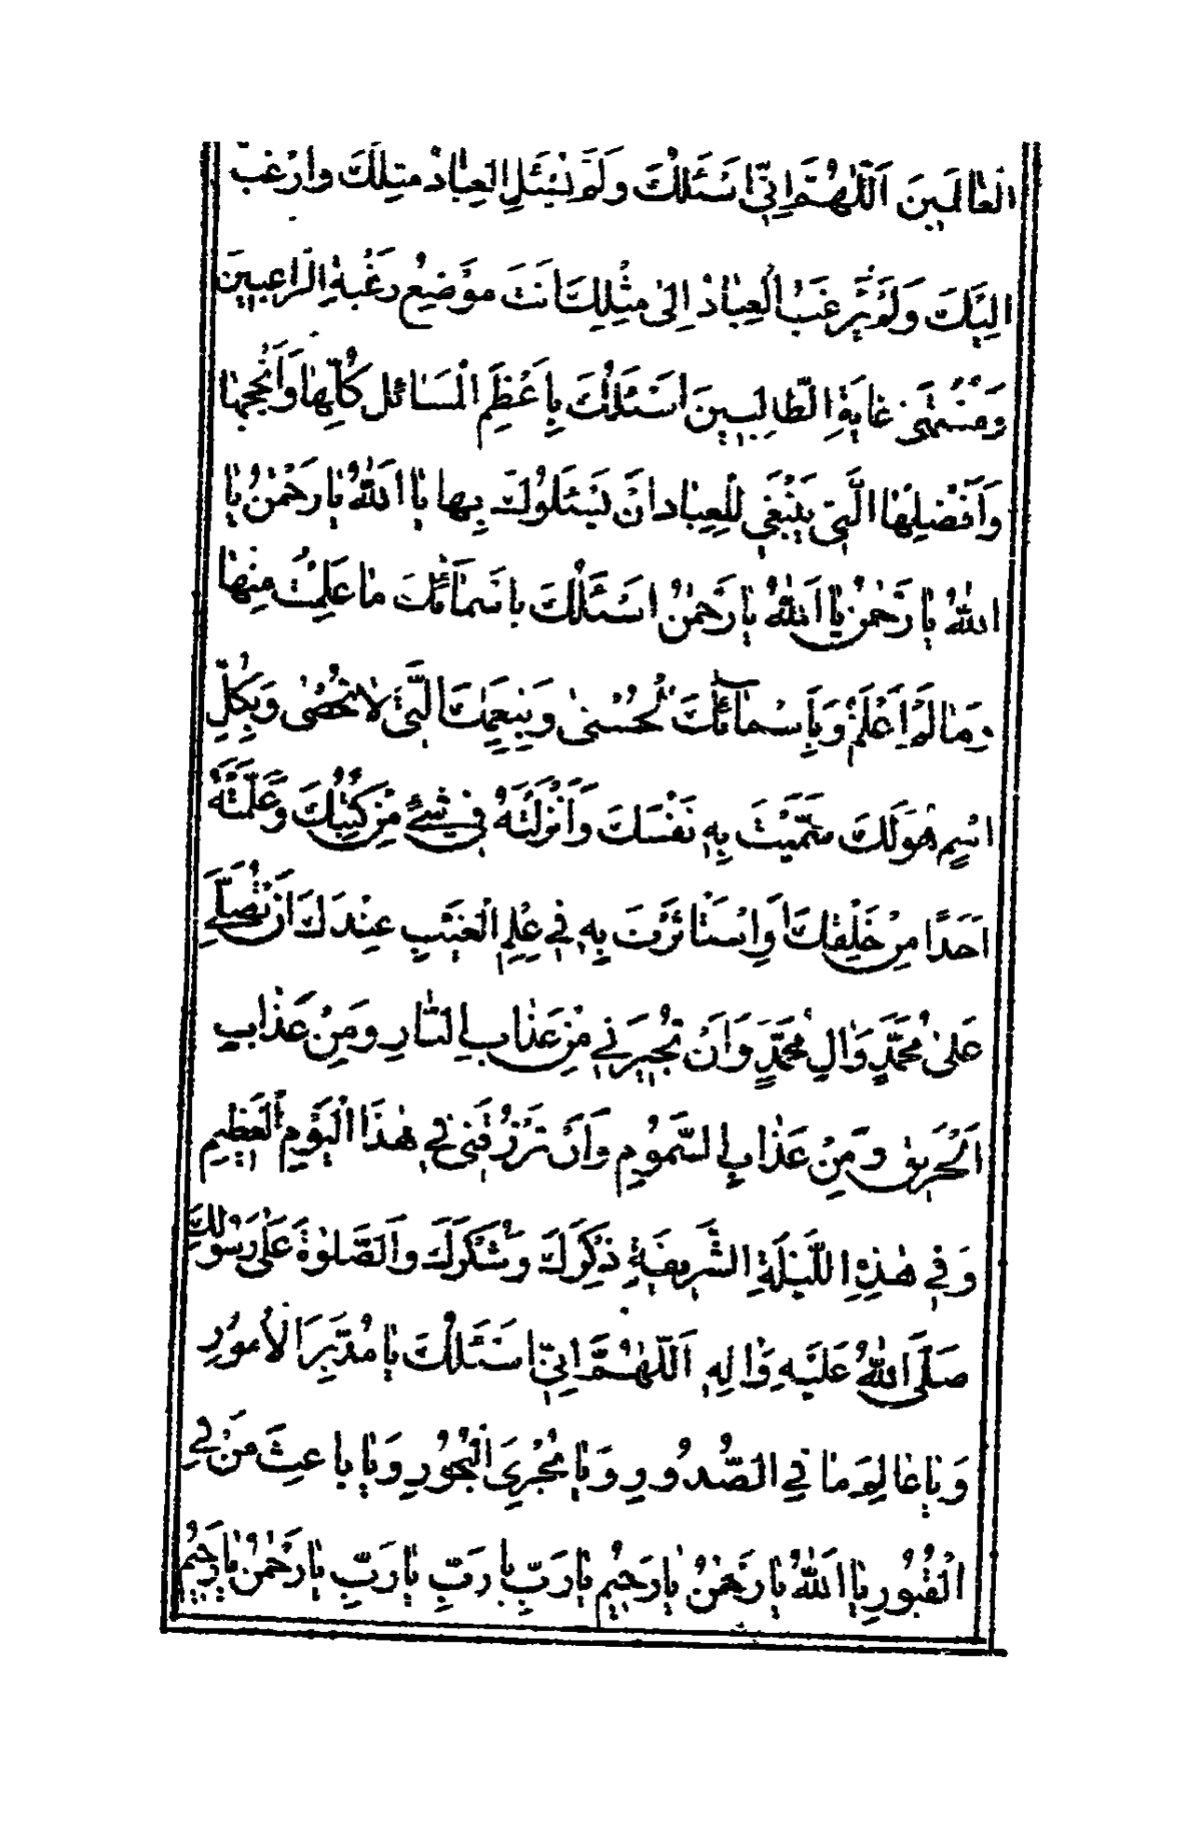 الْعٰالَمينَ اَللّٰهُمَّ اِنّي اَسْئَلُكَ وَلَمْ يَسْئَلِ الْعِبٰادُ مِثْلَكَ وَارْغَبُ
اِلَيْكَ وَلَمْ يَرْغَبُ الْعِبٰادُ اِلىٰ مِثْلِكَ اَنْتَ مَوْضِعُ رَغْبَةِ الرّاغِبينَ
وَمُنْتَهىٰ غايَةِ الطّالِبينَ اَسْئَلُكَ بِاَعْظَمِ الْمَسٰائِلِ كُلِّهٰا وَاَنْجَحِهٰا
وَاَفْضَلِهَا الَّتي يَنْبَغي لِلْعِبٰادِ اَنْ يَسْئَلُوكَ بِها يٰا اَللّٰهُ يٰا رَحْمٰنُ يٰا
اللّٰهُ يٰا رَحْمٰنُ يٰا اَللّٰهُ يٰا رَحْمٰنُ اَسْئَلُكَ بِاَسْمٰائِكَ مٰا عَلِمْتُ مِنْهٰا
وَمٰا لَمْ اَعْلَمْ وَبِاَسْمٰائِكَ الْحُسْنىٰ وَبِنِعَمِكَ الَّتي لاٰ تُحْصىٰ وَبِكُلِّ
اسْمٍ هُوَ لَكَ سَمَّيْتَ بِهِ نَفْسَكَ وَاَنْزَلْتَهُ في شَيْءٍ مِنْ كُتُبِكَ وَعَلَّمْتَهُ
اَحَدًا مِنْ خَلْقِكَ اَوِ اسْتَاْثَرْتَ بِهِ في عِلْمِ الْغَيْبِ عِنْدَكَ اَنْ تُصَلِّيَ
عَلىٰ مُحَمَّدٍ وَاٰلِ مُحَمَّدٍ وَاَنْ تُجيرَني مِنْ عَذٰابِ النّٰارِ وَمِنْ عَذٰابِ
الْحَريقِ وَمِنْ عَذٰابِ السَّمُومِ وَاَنْ تَرْزُقَني في هٰذَا الْيَوْمِ الْعَظيمِ
وَفي هٰذِهِ اللَّيْلَةِ الشَّريفَةِ ذِكْرَكَ وَشُكْرَكَ وَالصَّلوٰةَ عَلىٰ رَسُولِكَ
صَلَّى اللّٰهُ عَلَيْهِ وَاٰلِهِ اَللّٰهُمَّ اِنّي اَسْئَلُكَ يٰا مُدَبِّرَ الْاُمُورِ
وَيٰا عٰالِمَ مٰا فِي الصُّدُورِ وَيٰا مُجْرِيَ الْبُحُورِ وَيٰا باعِثَ مَنْ فِي
الْقُبُورِ يٰا اَللّٰهُ يٰا رَحْمٰنُ يٰا رَحيمُ يٰا رَبِّ يا رَبِّ يٰا رَبِّ يٰا رَحْمٰنُ يٰا رَحيمُ